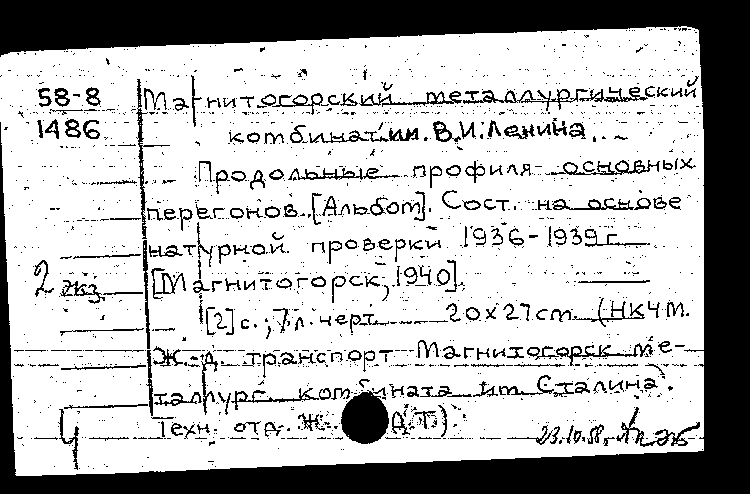 58-8 Магнитогорский металлургический
1486 комбинат им. В.И. Ленина.
Продольные профиля основных
перегонов. [Альбом]. Сост. на основе
натурной проверки 1936-1939 г.
2 экз. [Магнитогорск, 1940].
[2] с.; 7 л. черт. 20x27 cm. (НКЧМ.
Ж.-д. транспорт Магнитогорск ме-
таллург. комбината им. Сталина.
Техн. отд. Ж. Д.Т.).
23.10.58.